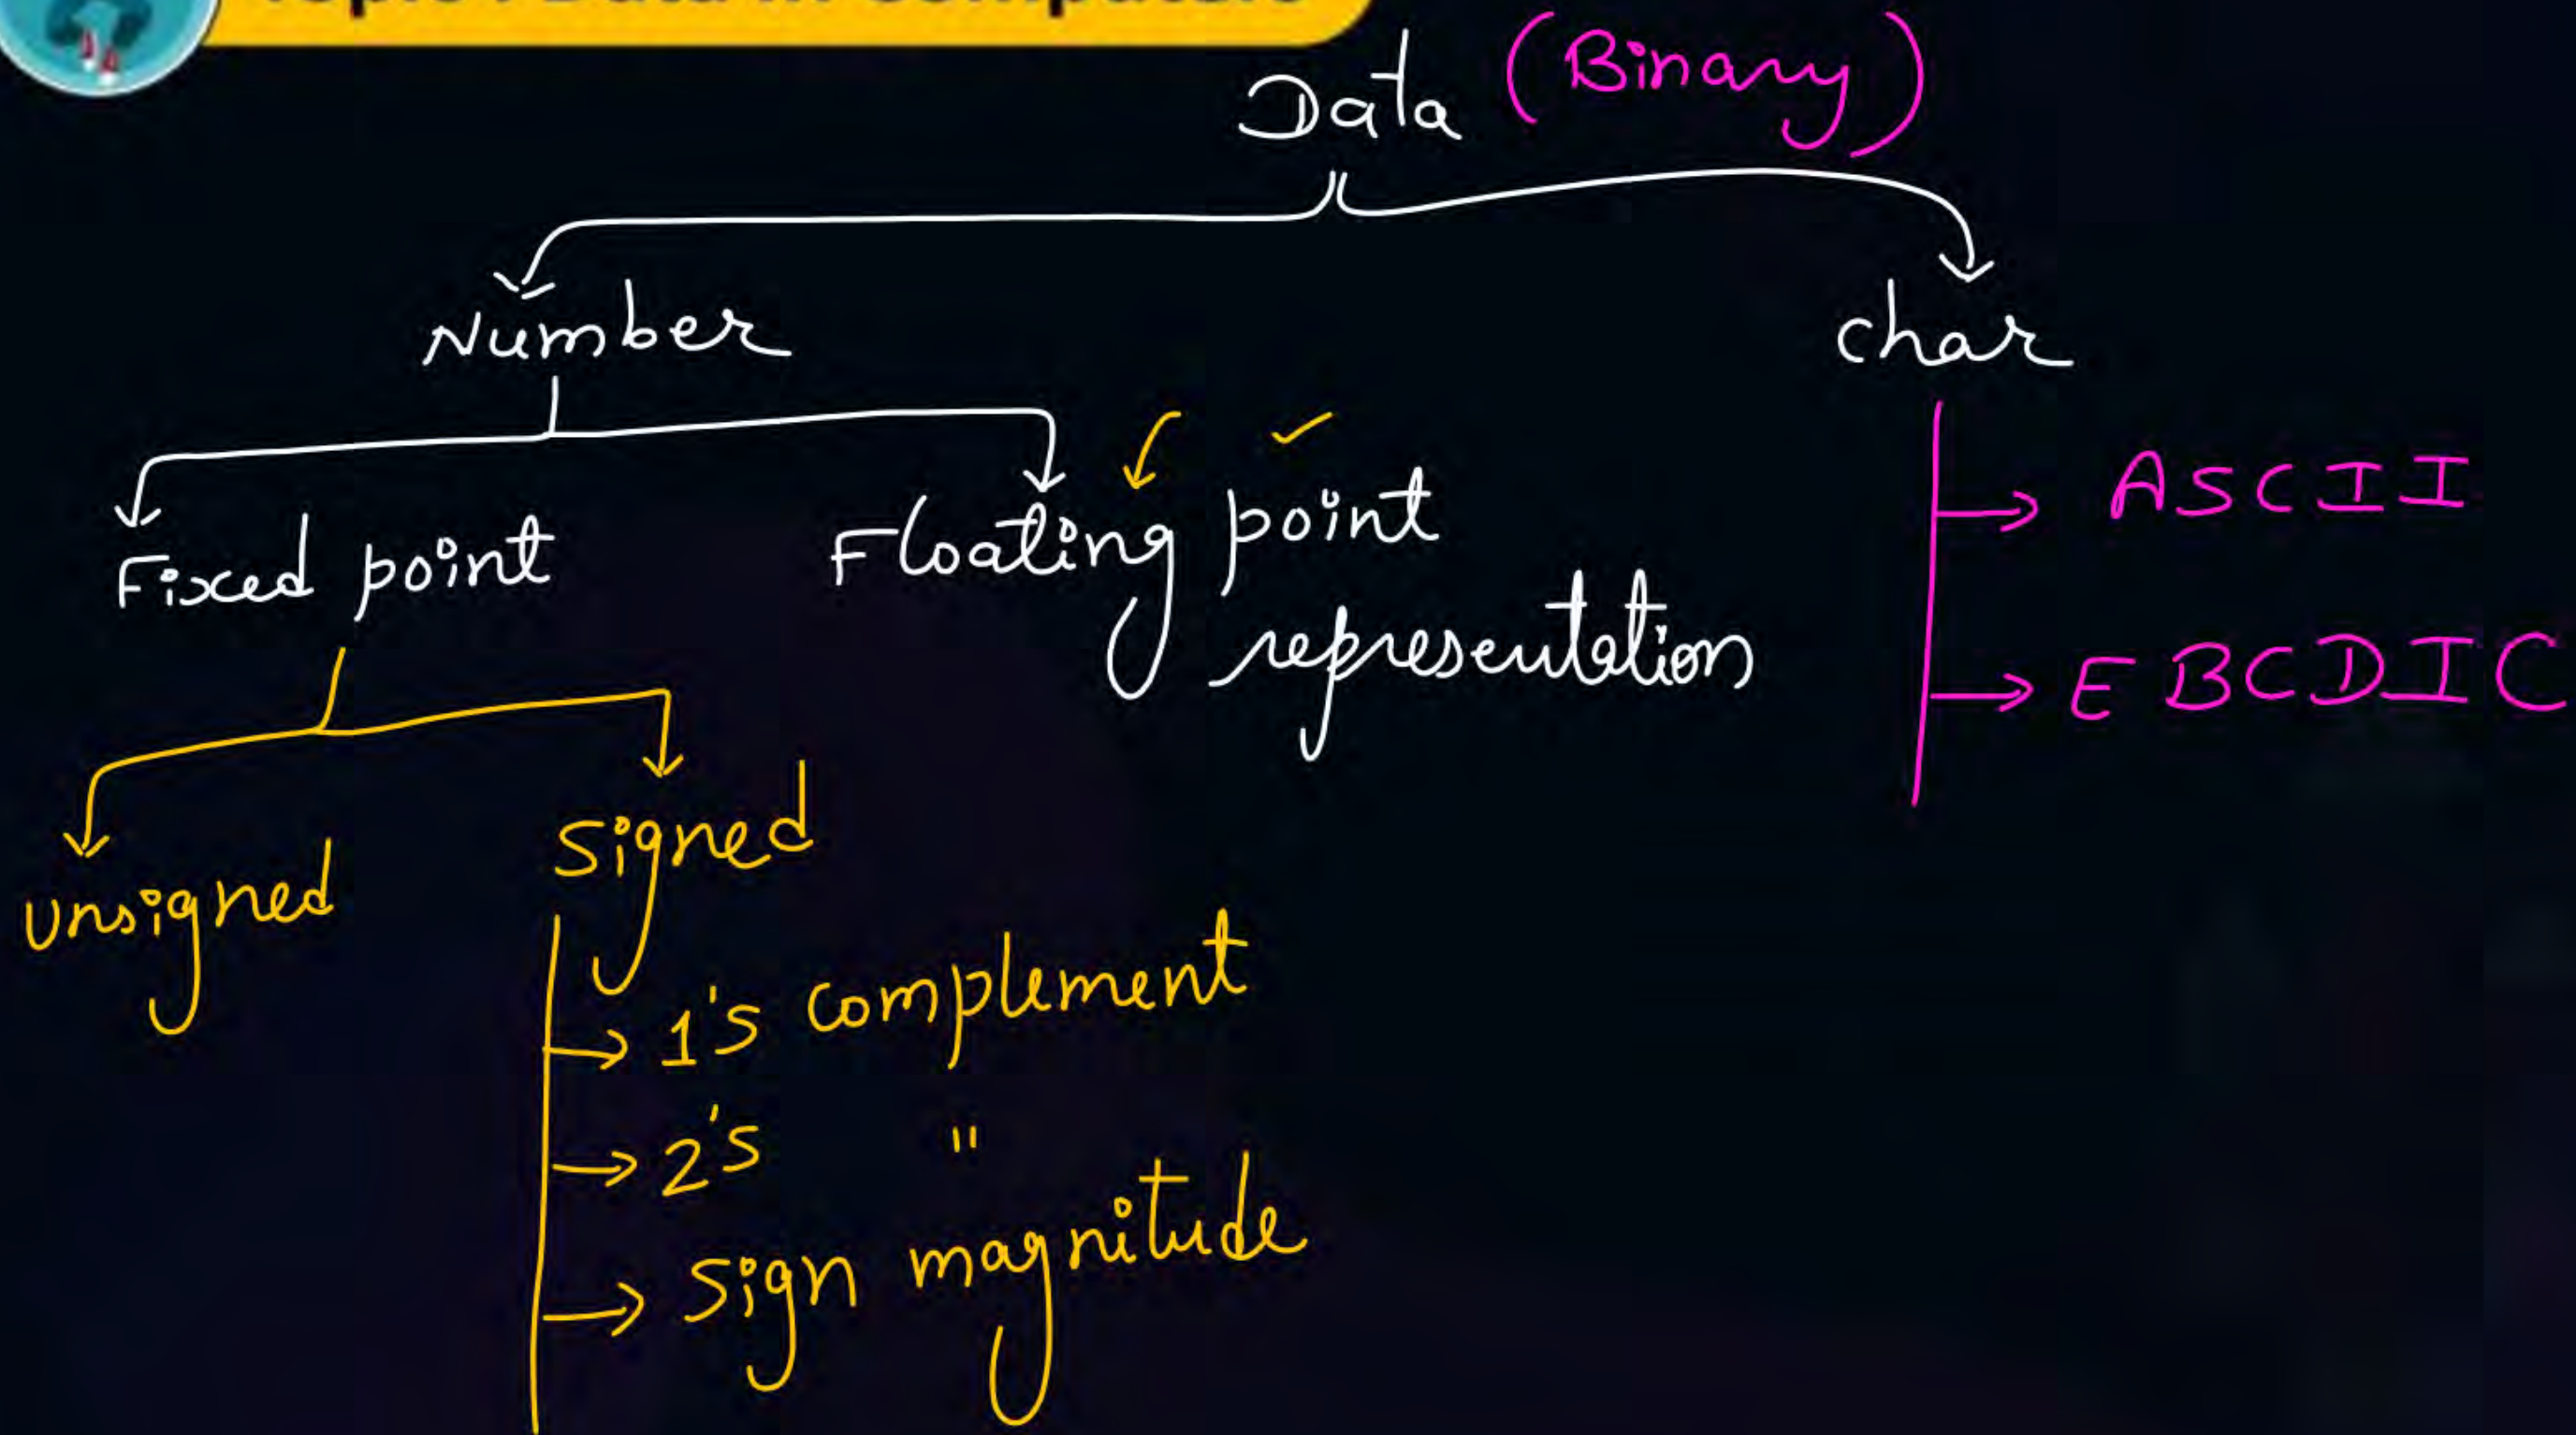 Topic : Data in Computers
Data (Binary)
Number
char
Fixed point
Floating point
representation
ASCII
EBCDIC
unsigned
signed
1's complement
2's "
sign magnitude